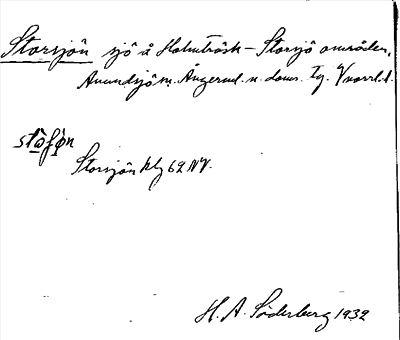 Storsjön sjö å Holmträsk - Storsjö områden,
Anundsjö sn. Ångerml. n. doms. tg. Vnorrl. l.
stọ̀fọ̀n
Storsjön kbg 62 NV.
H. A. Söderberg 1932